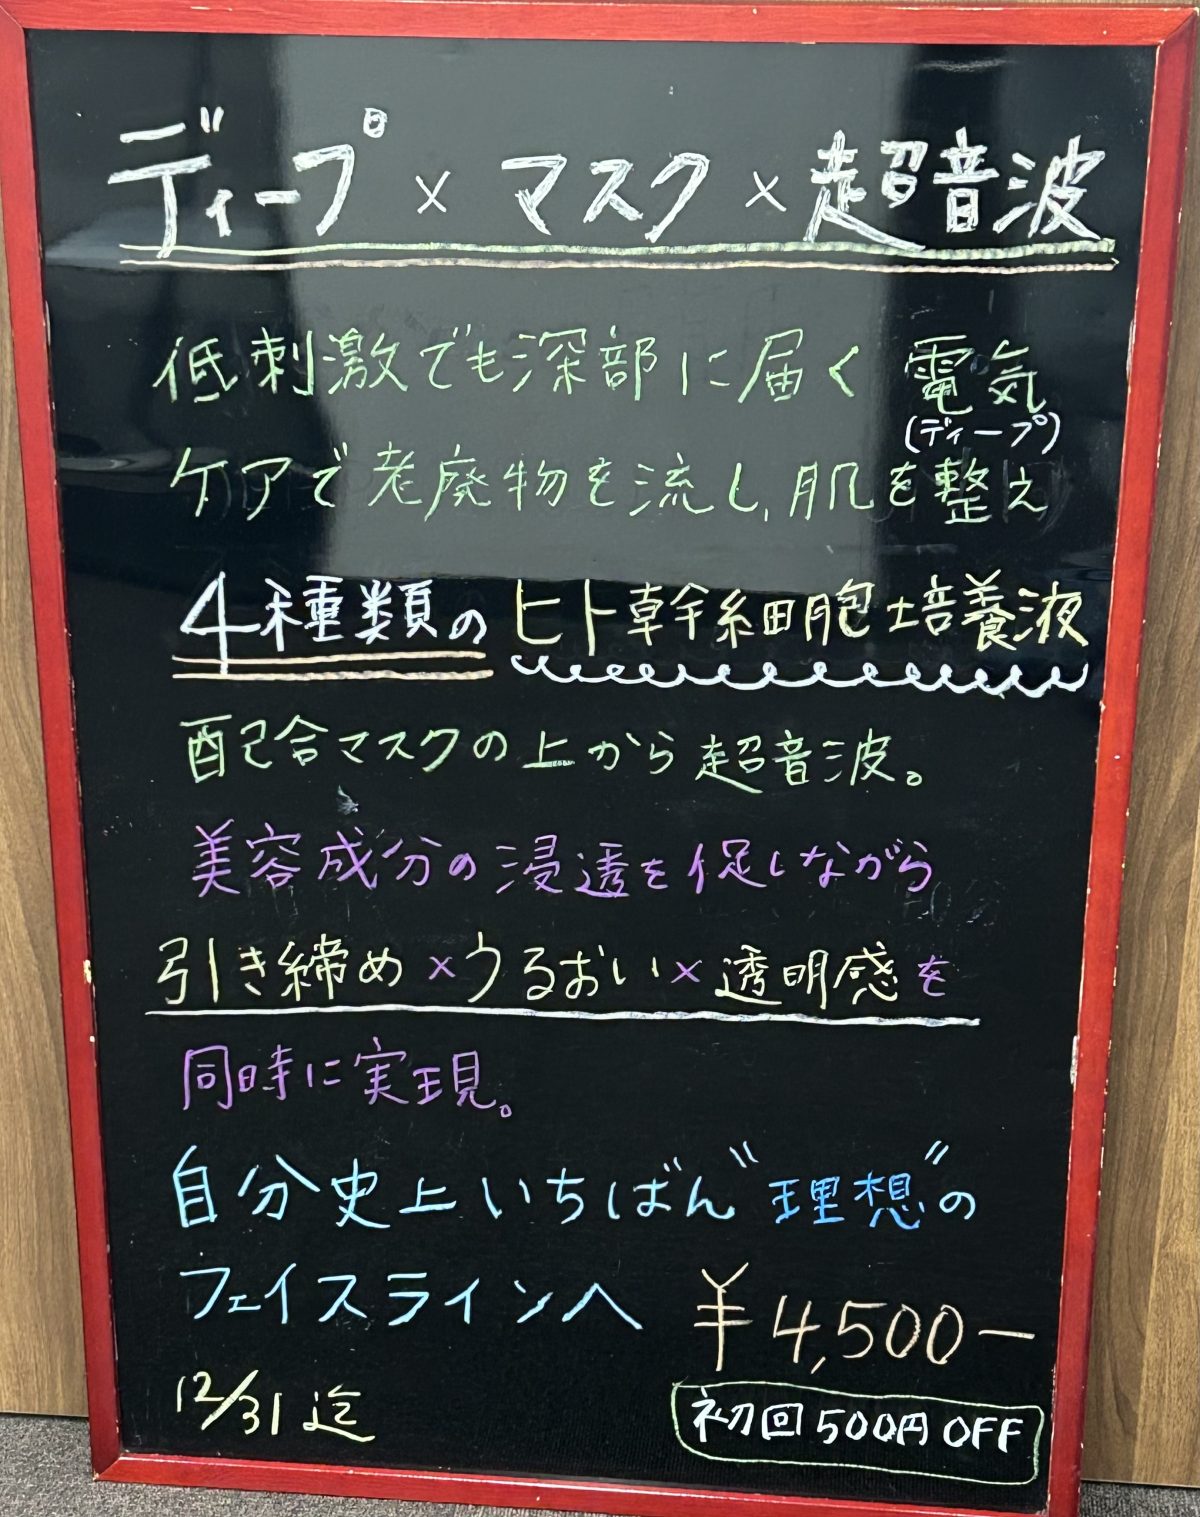 ディープ×マスク×超音波
低刺激でも深部に届く電気
(ディープ)
ケアで老廃物を流し、肌を整え
4種類のヒト幹細胞培養液
配合マスクの上から超音波。
美容成分の浸透を促しながら
引き締め×うるおい×透明感を
同時に実現。
自分史上いちばん"理想"の
フェイスラインへ
¥4,500ー
12/31迄
初回500円OFF